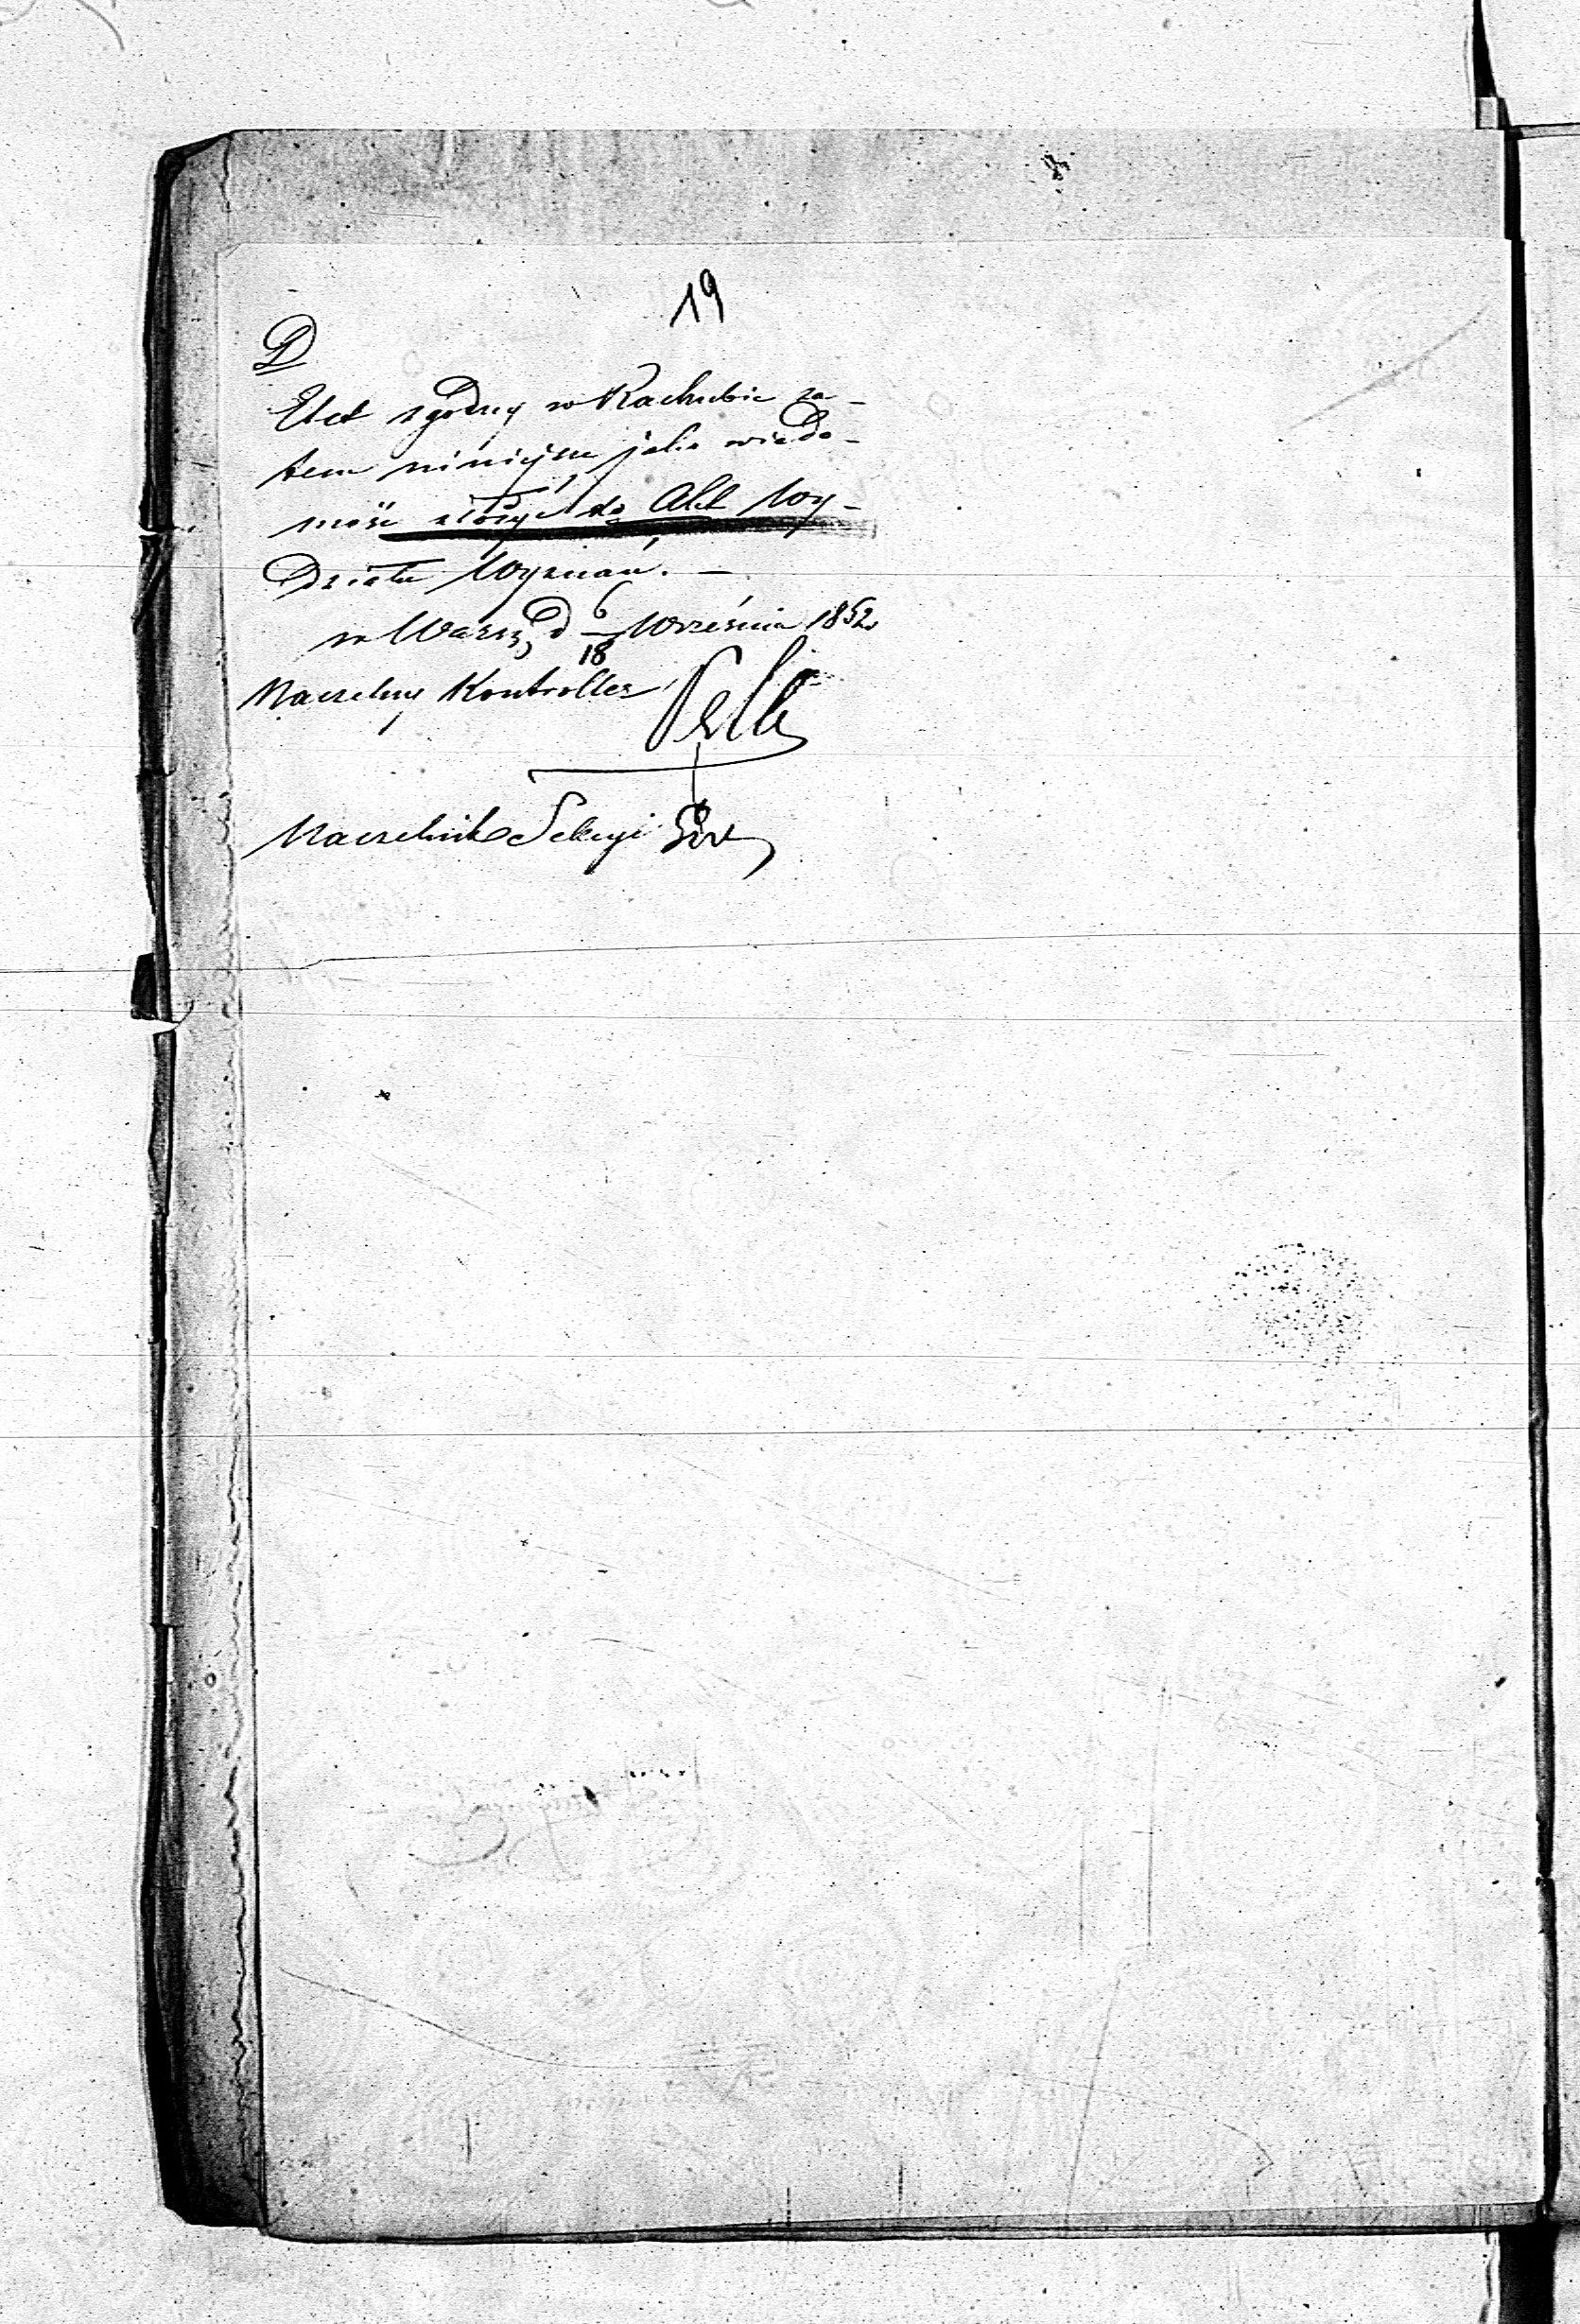 19
D
Etat zgodny w Rachubie za-
tem niniejsze jako wiado-
mość złożyć do Akt Wy-
Działu Wyznań. —
w Warsz, d 6/18 Września 1852
Naczelny Kontroller
Naczelnik Sekcyi